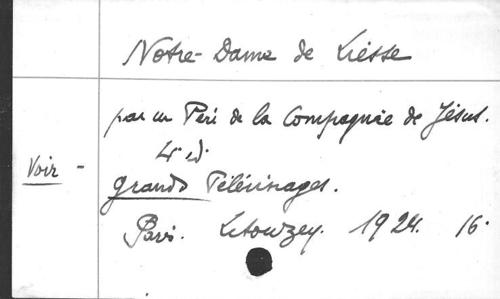 Notre-Dame de Liesse
par un Père de la Compagnie de Jésus.
Voir -
Grands Pélérinages.
Paris. Letouzey. 1924. 16°